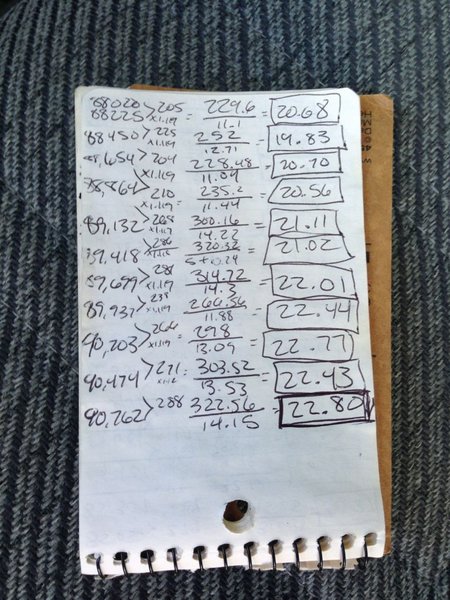 88020 > 205 229.6
88225 x1.119 = 11.1 = 20.68
88450 > 225 252 = 19.83
x1.119 12.71
88,654 > 204 228.48 = 20.70
x1.119 11.04
88,864 > 210 235.2 = 20.56
x1.119 11.44
89,132 > 268 300.16 = 21.11
14.22
89,418 > 286 320.32 = 21.02
5+10.24
89,699 > 281 314.72 = 22.01
x1.119 14.3
89,937 > 238 266.56 = 22.44
x1.119 11.88
90,203 > 266 298 = 22.77
x1.119 13.09
90,474 > 271 = 303.52 = 22.43
x1.12 13.53
90,762 > 288 322.56 = 22.80
14.15